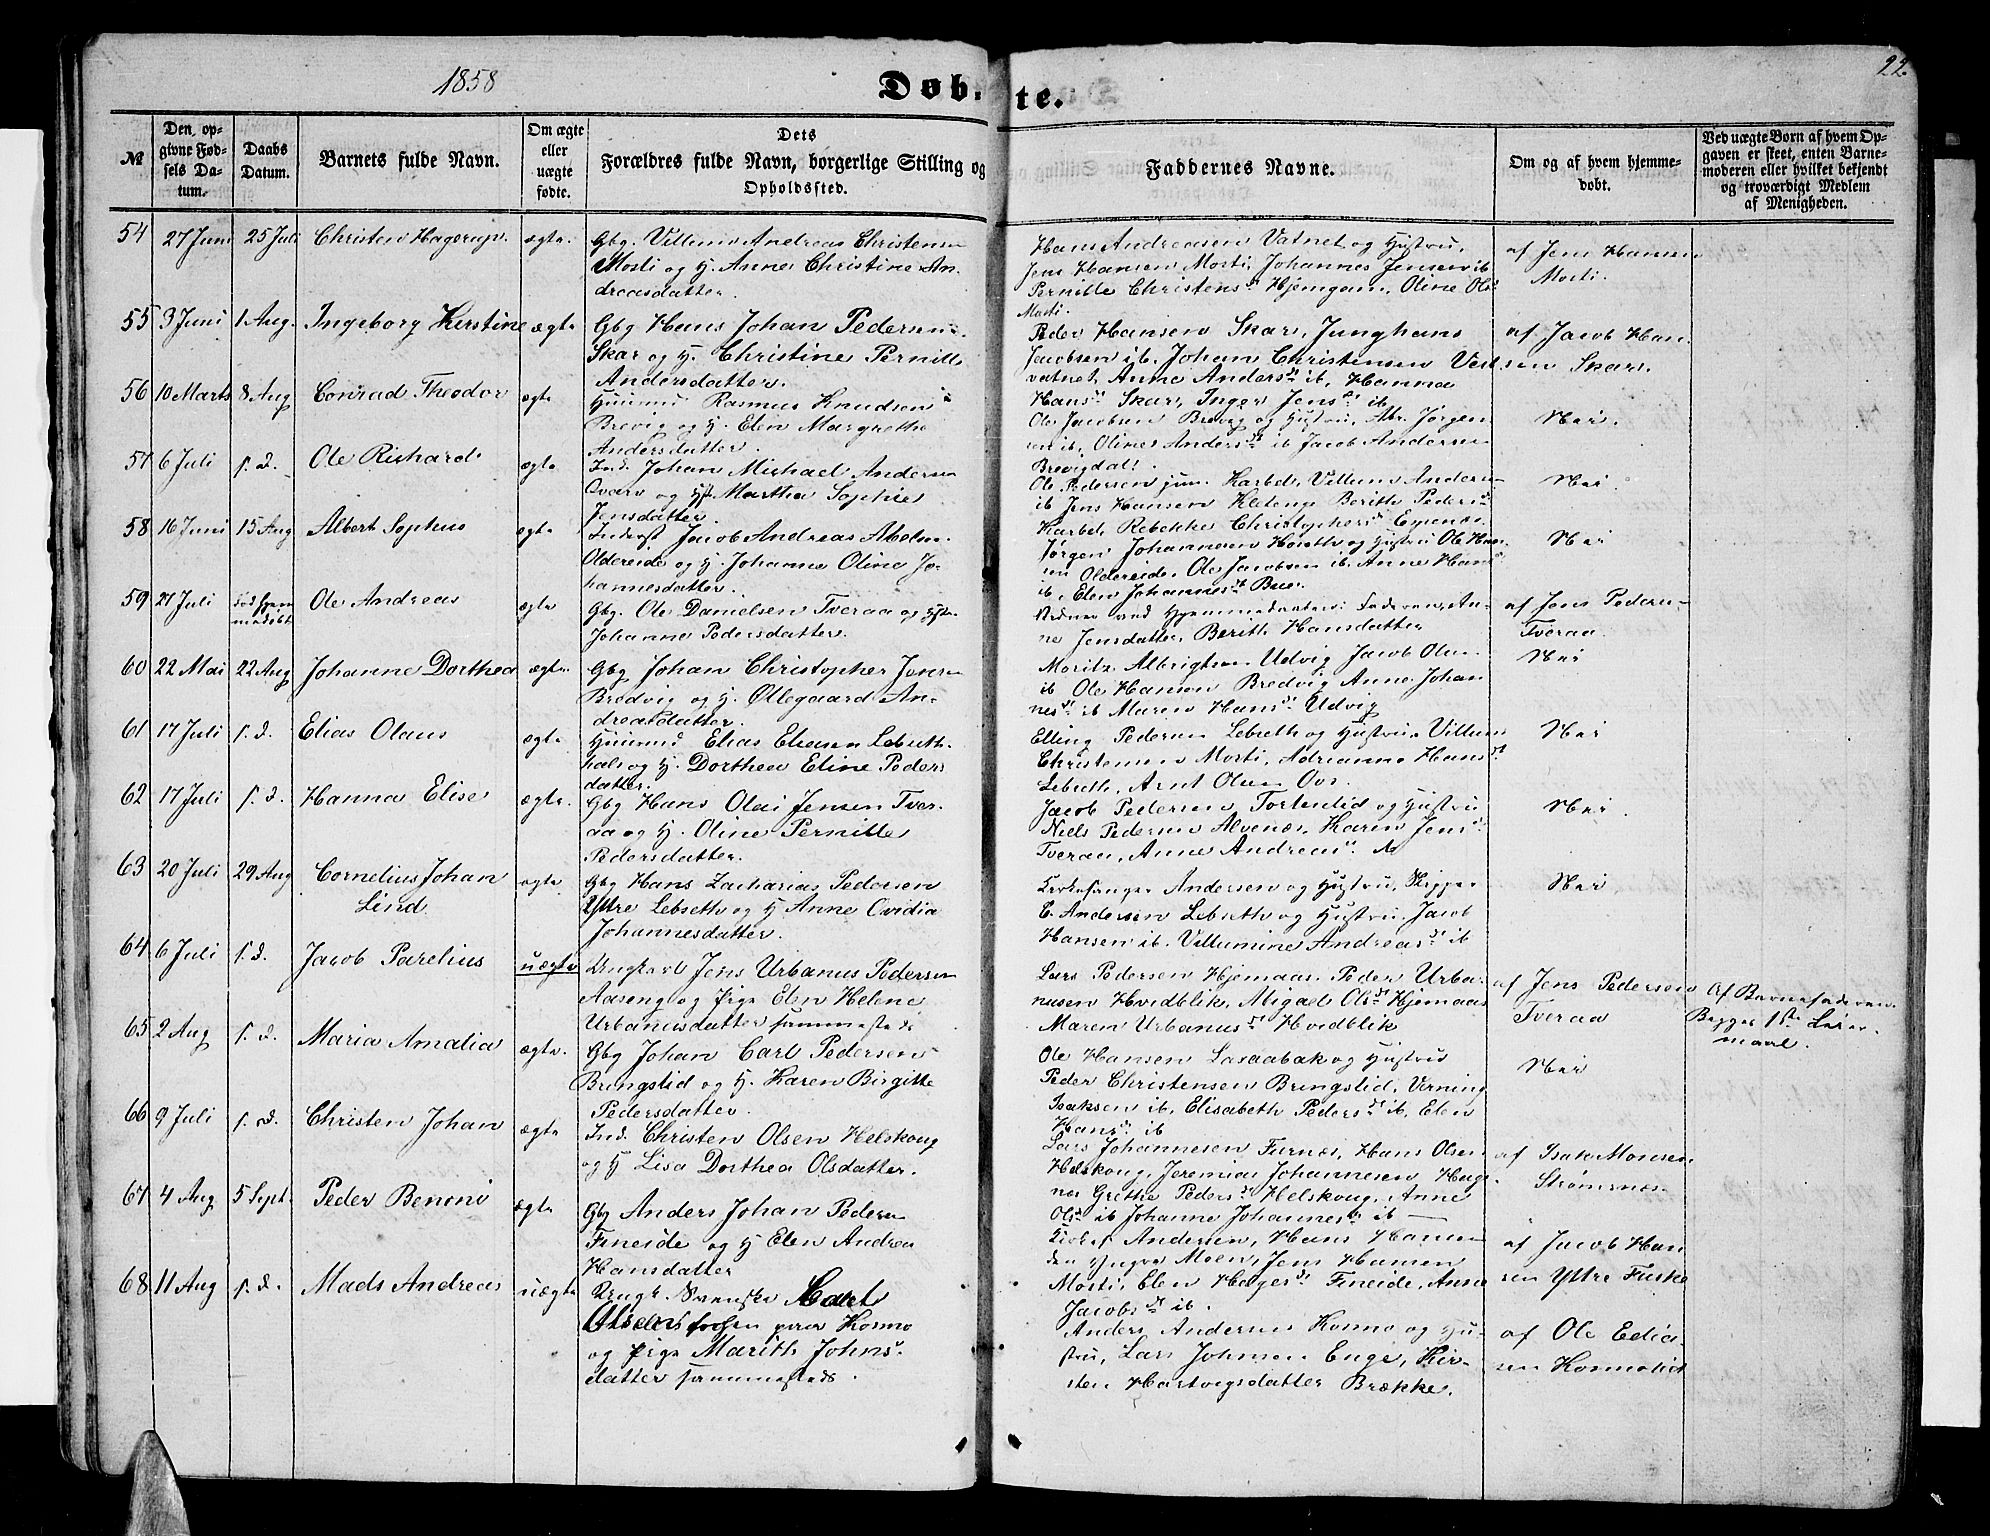 1858
Døb-
te.
22.
№
Den opgivne Fødsels Datum.
Daabs Datum.
Barnets fulde Navn.
Om ægte eller uægte fødte.
Dets Forældres fulde Navn, borgerlige Stilling og Opholdssted.
Faddernes Navne.
Om og af hvem hjemmedøbt.
Ved uægte Børn af hvem Opgaven er skeet, enten Barnemoderen eller hvilket bekjendt og troværdigt Medlem af Menigheden.
54 27 Juni 25 Juli Christen Hagerup. ægte.
Gbg. Villum Andreas Christensen
Mosti og H. Anne Christine An-
dreasdatter.
Hans Andreasen Vatnet og Hustru,
Jens Hansen Mosti, Johannes Jensen ib
Pernille Christens dt Hjemgam, Oline Ols dt
Mosti.
af Jens Hansen
Mosti.
55 3 Juni 1 Aug. Ingeborg Kerstine ægte
Gbg Hans Johan Pedersen
Skar og H. Christine Pernille
Andersdatter.
Peder Hansen Skar, Junghans
Jacobsen ib. Johan Christensen Vest-
vatnet, Anne Anders dt ib, Hanna
Hans dt Skar, Inger Jens dt ib
af Jacob Han-
sen Skar.
56 10 Marts 8 Aug Conrad Theodor ægte
Huusmd Rasmus Knudsen
Brevig og H. Elen Margrethe
Andersdatter.
Ole Jacobsen Brevig og Hustru, Abr. Jørgen-
sen ib, Oline Anders dt ib Jacob Andersen
Brevigdal.
Nei.
57 6 Juli s. d. Ole Rishard ægte
Ind. Johan Mishael Andersen
Qvarv og H. Martha Sophie
Jensdatter.
Ole Pedersen jun. Karbøl, Villum Andersen
ib Jens Hansen Kleteng Berith Peders dt
Karbøl, Rebekke Christophers dt Evenæs.
Nei.
58 16 Juni 15 Aug Albert Sophus ægte
Inderst Jacob Andreas Abelsen
Oldereide og H. Johanne Oline Jo-
hannesdatter.
Jørgen Johannesen Hoseth og Hustru Ole Han-
sen Oldereide, Ole Jacobsen ib. Anne Hans dt
ib, Elen Johannes dt Bue.
Nei
59 21 Juli død hjem-
medøbt Ole Andreas ægte
Gbg. Ole Danielsen Tveraa og Hstr.
Johanne Pedersdatter.
Vidner ved Hjemmedaaben: Faderen, An-
ne Jensdatter, Berith Hansdatter
af Jens Pedersen
Tveraa.
60 22 Mai 22 Aug Johanne Dorthea ægte.
Gbg Johan Christopher Jensen
Bredvig og H. Øllegaard An-
dreasdatter.
Moritz Albrigtsen Udvig Jacob Olsen
ib Ole Hansen Bredvig Anne Johan-
nes dt ib Maren Hans dt Udvig
Nei
61 17 Juli s. d. Elias Olaus ægte.
Huusmd Elias Eliasen Lebseth-
hals og H. Dorthea Eline Peders
datter.
Elling Pedersen Lebseth og Hustru, Villum
Christensen Mosti, Adrianne Hans dt
Lebseth, Arnt Olsen Ovs.
Nei
62 17 Juli s. d. Hanna Elise ægte.
Gbg Hans Olai Jensen Tver-
aa og H. Oline Pernille
Pedersdatter.
Jacob Pedersen Tortenlid og Hustru
Niels Pedersen Alvenæs, Karen Jens dt
Tveraa, Anne Andreas dt ib
Nei.
63 20 Juli 29 Aug Cornelius Johan
Lind ægte.
Gbg Hans Zacharias Pedersen
Yttre Lebseth og H Anne Ovidia
Johannesdatter.
Kirkesanger Andersen og Hustru, Skipper
E. Andersen Lebseth og Hustru, Jacob
Hansen ib. Villumine Andreas dt ib
Nei.
64 6 Juli s. d. Jacob Parelius uægte
Ungkarl Jens Urbanus Pedersen
Aaseng og Pige Elen Helene
Urbanusdatter sammesteds
Lars Pedersen Hjemaas, Peder Urba-
nusen Hvidblik, Abigael Ols dt Hjemaas
Maren Urbanus dt Hvidblik
af Jens Pedersen
Tveraa
Af Barnefaderen.
Begges 1ste Leier-
maal.
65 2 Aug s. d. Maria Amalia ægte.
Gbg Johan Carl Pedersen
Bringslid og H. Karen Birgitte
Pedersdatter.
Ole Hansen Laxaabak og Hustru
Peder Christensen Bringslid, Verning
Isaksen ib, Elisabeth Peders dt ib, Elen
Hans dt ib
Nei
66 9 Juli s. d. Christen Johan ægte
Ind. Christen Olsen Helskoug
og H Lisa Dorthea Olsdatter.
Lars Johannesen Furnæs, Hans Olsen
Helskoug, Jeremias Johannesen Hag-
næs Grethe Peders dt Helskoug, Anne
Ols dt ib Johanne Johannes dt ib
af Isak Monsen
Strømsnæs
67 4 Aug 5 Sept. Peder Benoni ægte
Gbg Anders Johan Pedersen
Fineide og H Elen Andrea
Hansdatter
Kirkes. Andersen, Hans Hansen
den Yngre Moen, Jens Hansen
Mosti, Elen Hagers dt Fineide, Anne
Jacobs dt ib.
af Jacob Han-
sen Yttre Fuske
68 11 Aug s. d. Mads Andreas uægte
Ungk. Svenske
og Pige Marith Johns-
datter sammesteds.
Anders Andersen Kosmo og Hu-
stru, Lars Johnsen Enge, Kir-
sten Hartvigsdatter Brække.
af Ole Edia-
sen Kosmolid